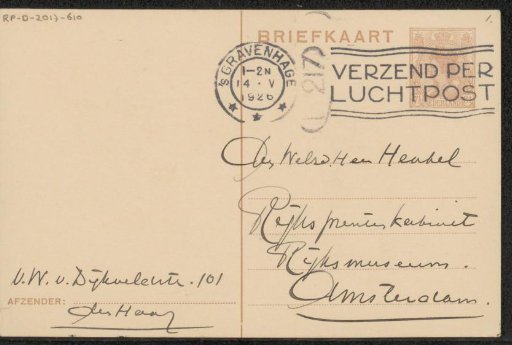 RP-D-2017-610
1.
BRIEFKAART
'S GRAVENHAGE
1-2N
14 · V
1926
217
VERZEND PER
LUCHTPOST
Heer Henkel
Rijksprentenkabinet
Rijksmuseum.
Amsterdam.
101
AFZENDER:
den Haag